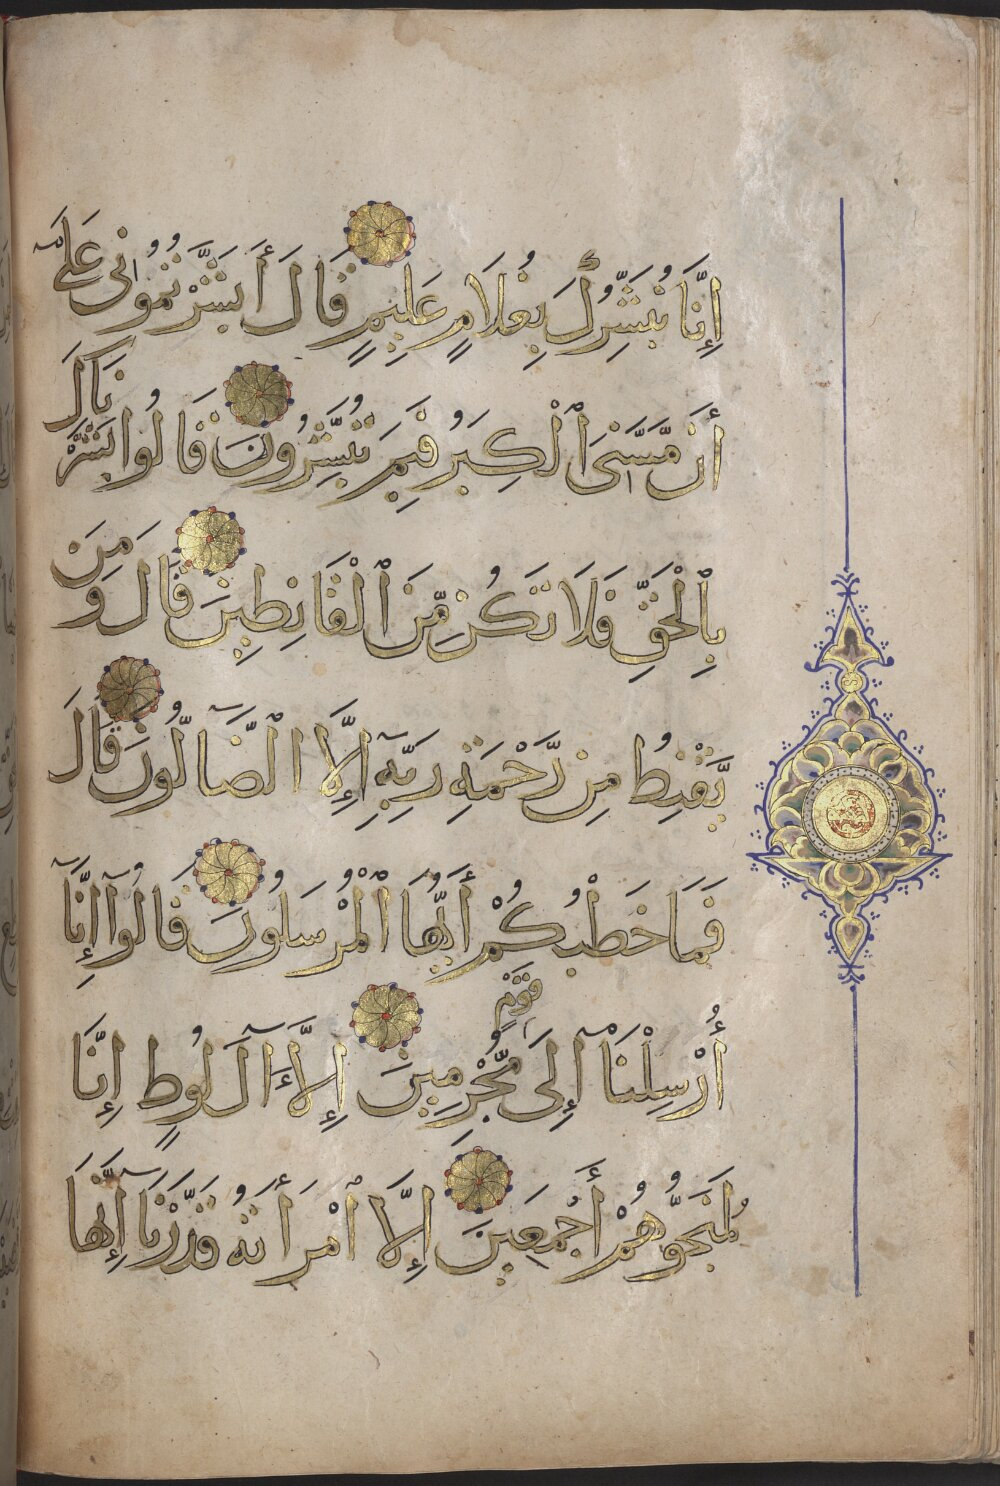 إِنَّا نُبَشِّرُكَ بِغُلَامٍ عَلِيمٍ قَالَ أَبَشَّرْتُمُونِي عَلَى
أَن مَّسَّنِيَ ٱلْكِبَرُ فَبِمَ تُبَشِّرُونَ قَالُوا بَشَّرْنَاكَ
بِٱلْحَقِّ فَلَا تَكُن مِّنَ ٱلْقَانِطِينَ قَالَ وَمَن
يَقْنِطُ مِن رَّحْمَةِ رَبِّهِ إِلَّا ٱلضَّآلُّونَ قَالَ
فَمَا خَطْبُكُمْ أَيُّهَا ٱلْمُرْسَلُونَ قَالُوٓا إِنَّآ
أُرْسِلْنَآ إِلَىٰ قَوْمٍ مُّجْرِمِينَ إِلَّآ آلَ لُوطٍ إِنَّا
لَمُنَجُّوهُمْ أَجْمَعِينَ إِلَّا ٱمْرَأَتَهُ قَدَّرْنَآ إِنَّهَا